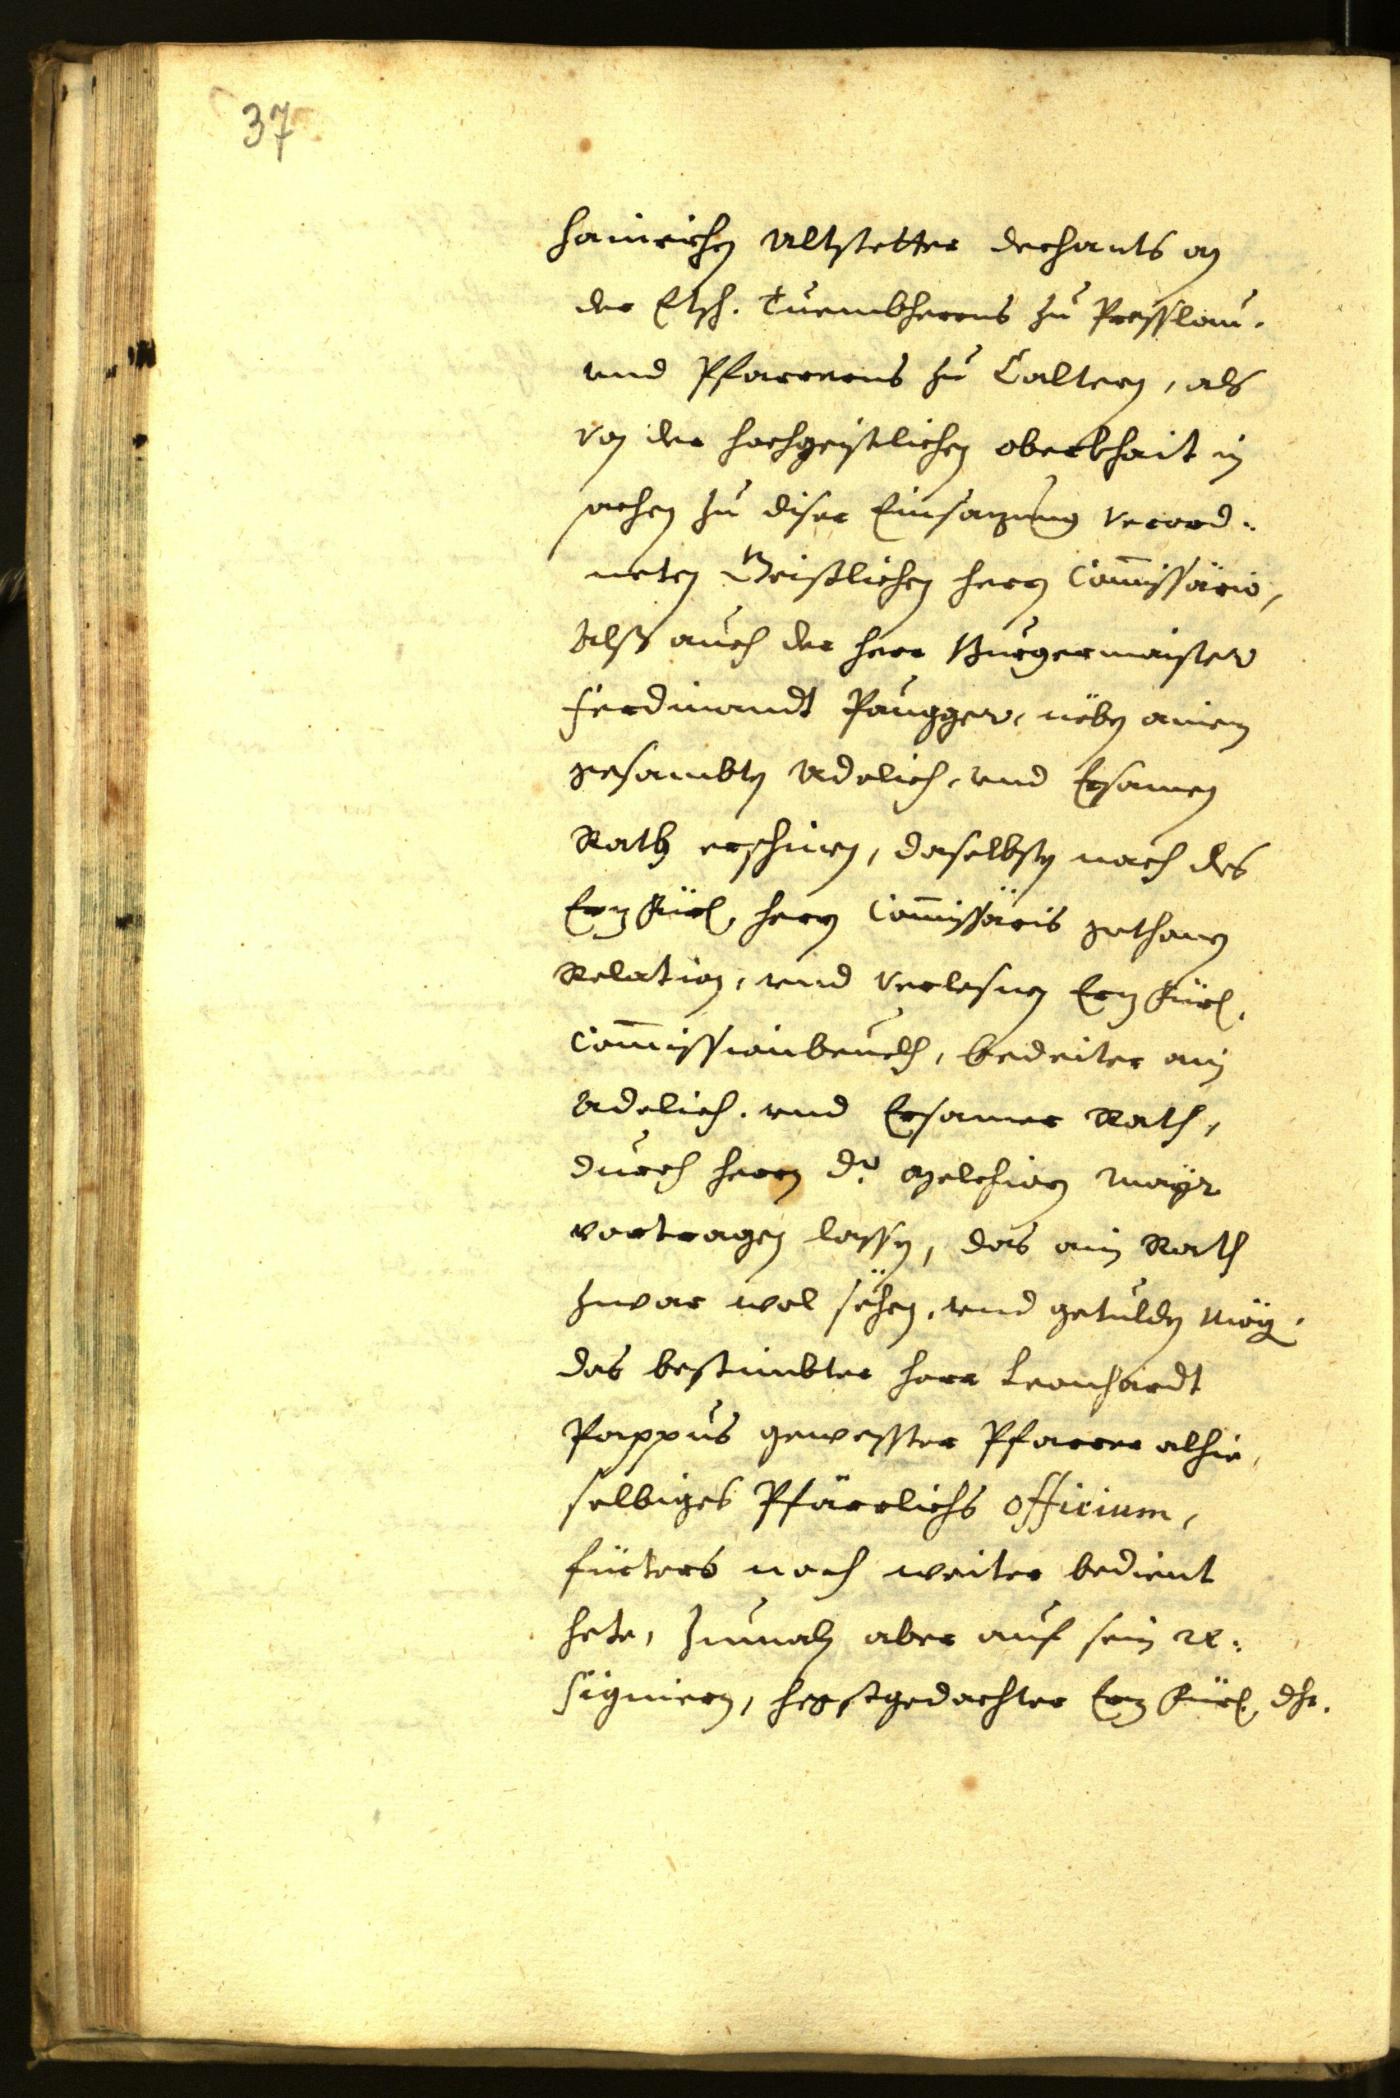 37
Hainrichen Altstetter dechants an
der Etsch. Tuembherrns zu Presslau.
vnd Pfarrerns zu Caltern, als
von der hochgeistlichen oberkhait in
sachen zu diser Einsazung verord-
neten Geistlichen herrn Commissario,
Alß auch der herr Burgermaister
Ferdinandt Paugger, nëben ainem
gesambten Adelich. vnd Ersamen
Rath erschinen, daselbsten nach des
Erzfürl. herrn Commissaris gethanen
Relation, vnd verlesnen Erzfürl.
Commissionbeuelch, bedeiter ain
Adelich. vnd Ersamer Rath,
durch herrn Dr. Melchiorn Mayr
vortragen lassen, das ain Rath
zwar wol sëhen, vnd getulden mög.
das bestimbter herr Leonhardt
Pappus gewesster Pfarrer alhie,
selbiges Pfärrlichs officium,
fürters noch weiter bedient
hete, Zumaln aber auf sein re-
signiern, hegstgedachter Erzfürl. dht.